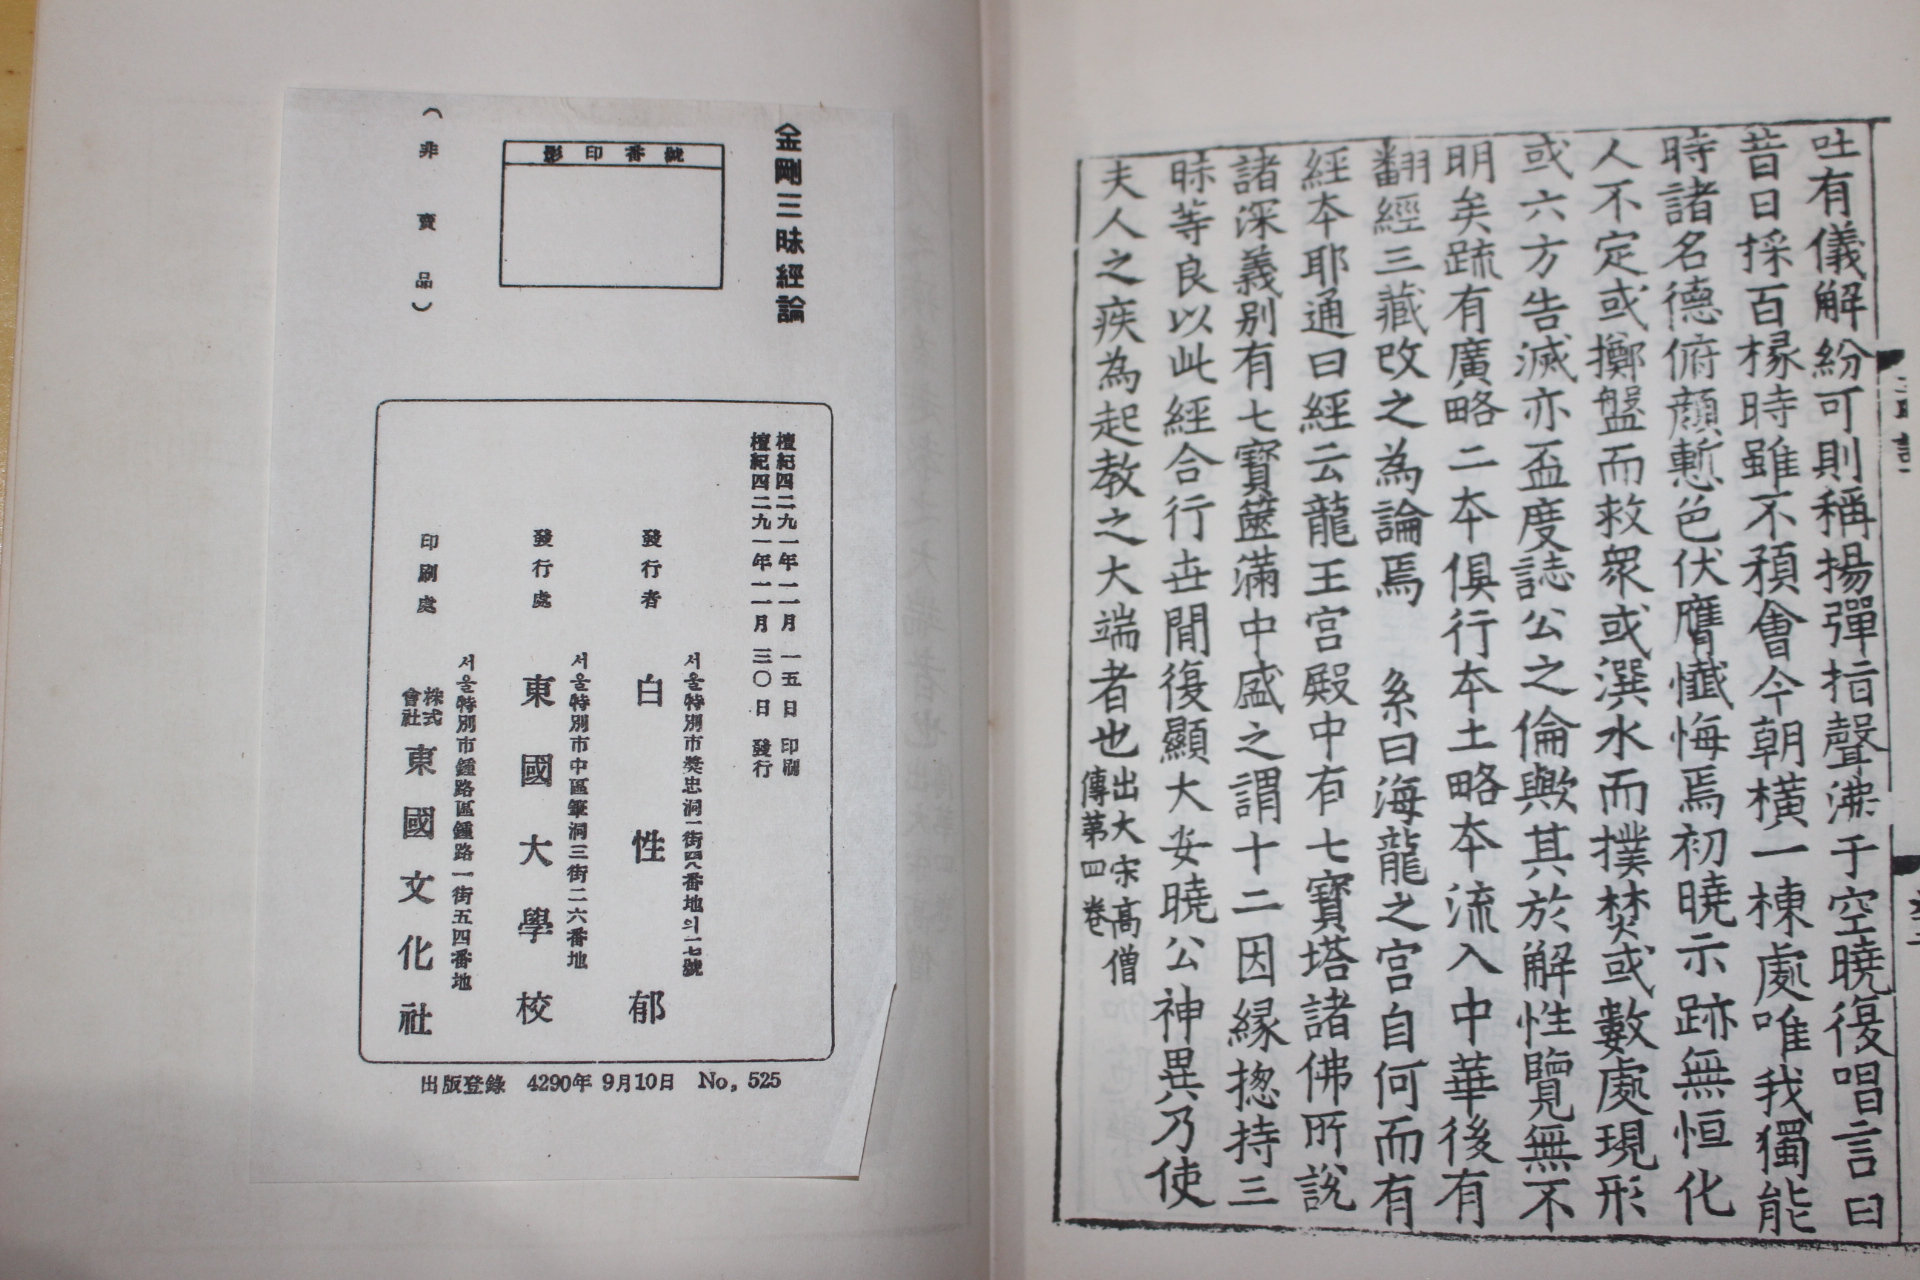 吐有儀解紛可則稱揚彈指聲沸于空曉復唱言曰
昔日採百椽時雖不預會今朝橫一棟處唯我獨能
時諸名德俯顏慙色伏膺懺悔焉初曉示跡無恒化
人不定或擲盤而救衆或潠水而撲焚或數處現形
或六方告滅亦盃度誌公之倫歟其於解性覽無不
明矣疏有廣略二本俱行本土略本流入中華後有
翻經三藏改之為論焉 系曰海龍之宮自何而有
經本耶通曰經云龍王宮殿中有七寶塔諸佛所說
諸深義別有七寶篋滿中盛之謂十二因緣揔持三
昧等良以此經合行世間復顯大安曉公神異乃使
夫人之疾為起教之大端者也 出大宋高僧
傳第四卷
金剛三昧經論
影印番號
(非賣品)
檀紀四二九一年一一月一五日 印刷
檀紀四二九一年一一月三〇日 發行
서울特別市奬忠洞一街四八番地의一七號
發行者 白性郁
서울特別市中區筆洞三街二六番地
發行處 東國大學校
서울特別市鍾路區鍾路一街五四番地
印刷處 株式會社 東國文化社
出版登錄 4290年 9月10日 No. 525